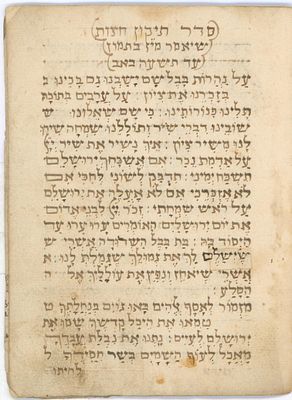 סדר תיקון חצות
שיאמר מיז בתמוז
עד תשעה באב
על נהרות בבל שם ישבנו גם בכינו
בזכרנו את ציון : על ערבים בתוכה
תלינו כנורותינו : כי שם שאלונו
שובינו דברי שיר ותוללנו שמחה שירו
לנו משיר ציון : איך נשיר את שיר יי
על אדמת נכר : אם אשכחך ירושלם
תשכח ימיני : תדבק לשוני לחכי אם
לא אזכרכי אם לא אעלה את ירושלם
על ראש שמחתי : זכר יי לבני אדום
את יום ירושלים האומרים ערו ערו עד
היסוד בה : בת בבל השדודה אשרי ש
שישלם לך את גמולך שגמלת לנו : א
אשרי שיאחז ונפץ את עולליך אל
הסלע :
מזמור לאסף אלהים באו גוים בנחלתך ט
טמאו את היכל קדשך שמו את
ירושלם לעיים : נתנו את נבלת עבדיך
מאכל לעוף השמים בשר חסידיך ל
לחיתו